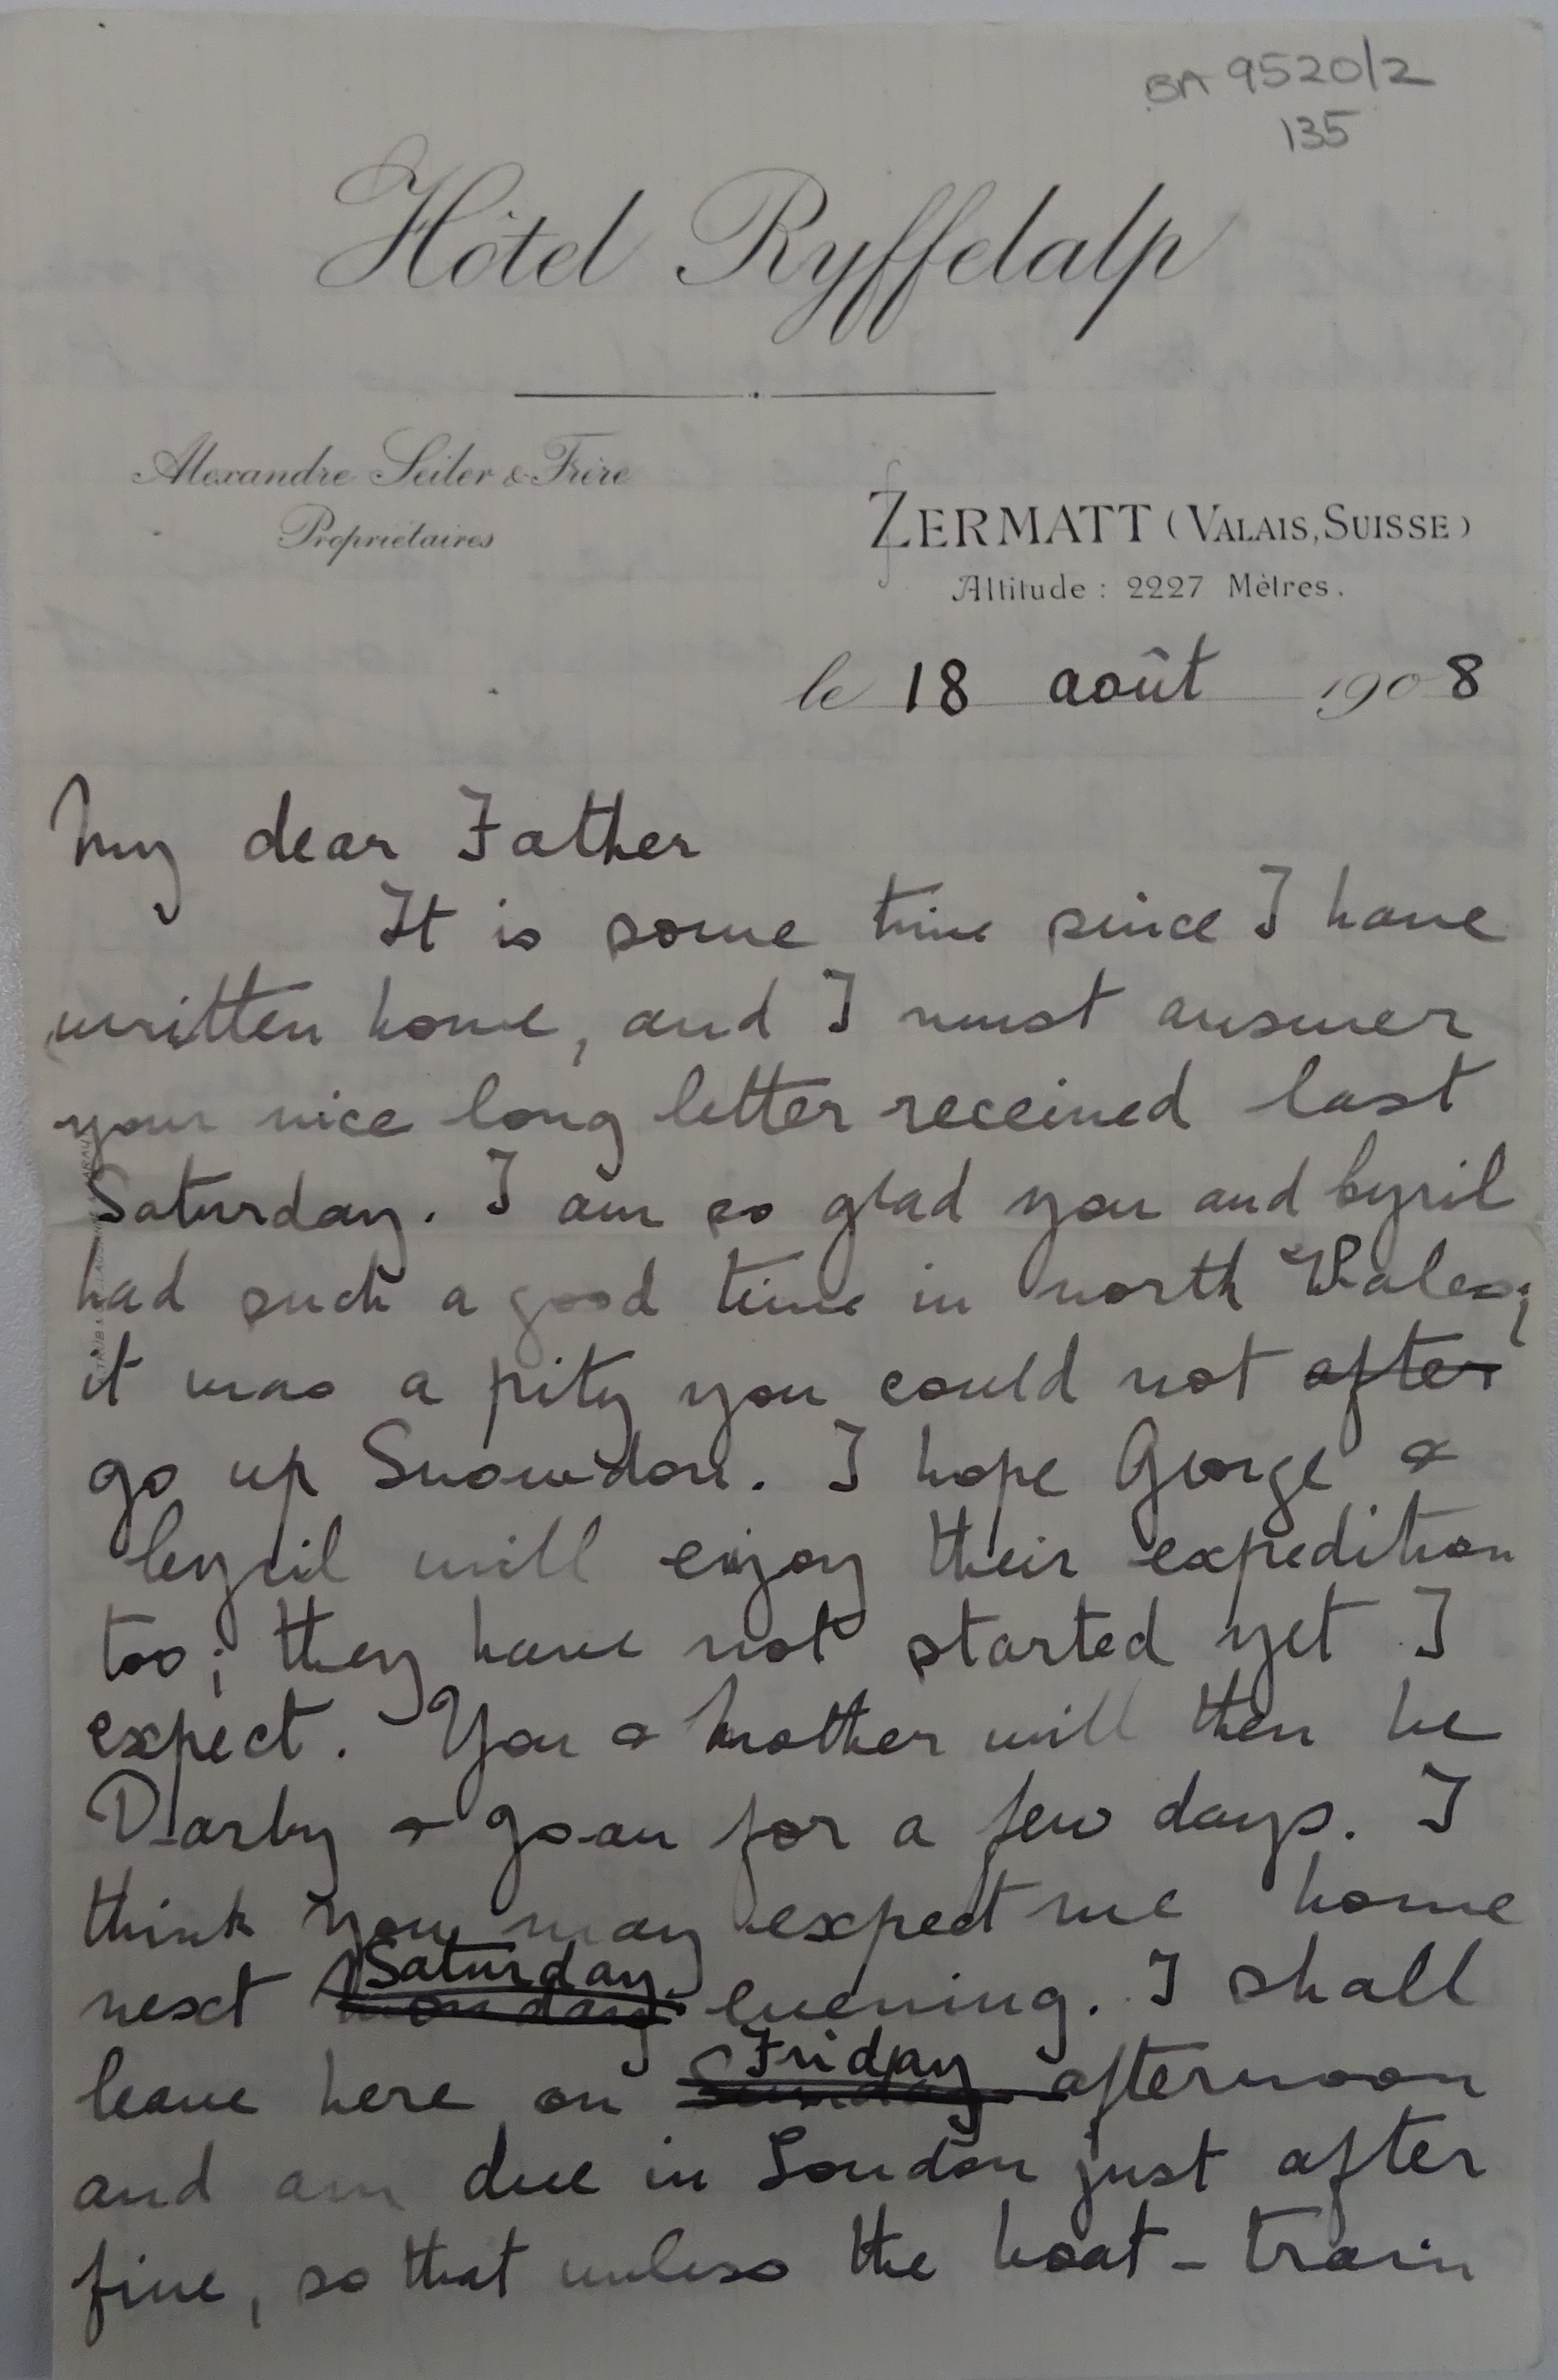 BA 9520/2
135
Hôtel Ryffelalp
Alexandre Seiler & Frère
Propriétaires
ZERMATT (VALAIS, SUISSE)
Altitude : 2227 Mètres.
le 18 août 1908
My dear Father
It is some time since I have
written home, and I must answer
your nice long letter received last
Saturday. I am so glad you and Cyril
had such a good time in north Wales;
it was a pity you could not after
go up Snowdon. I hope George &
Cyril will enjoy their expedition
too; they have not started yet I
expect. You & Mother will then be
Darby & Joan for a few days. I
think you may expect me home
Saturday
next Monday evening. I shall
Friday
leave here on Sunday afternoon
and am due in London just after
five, so that unless the boat-train